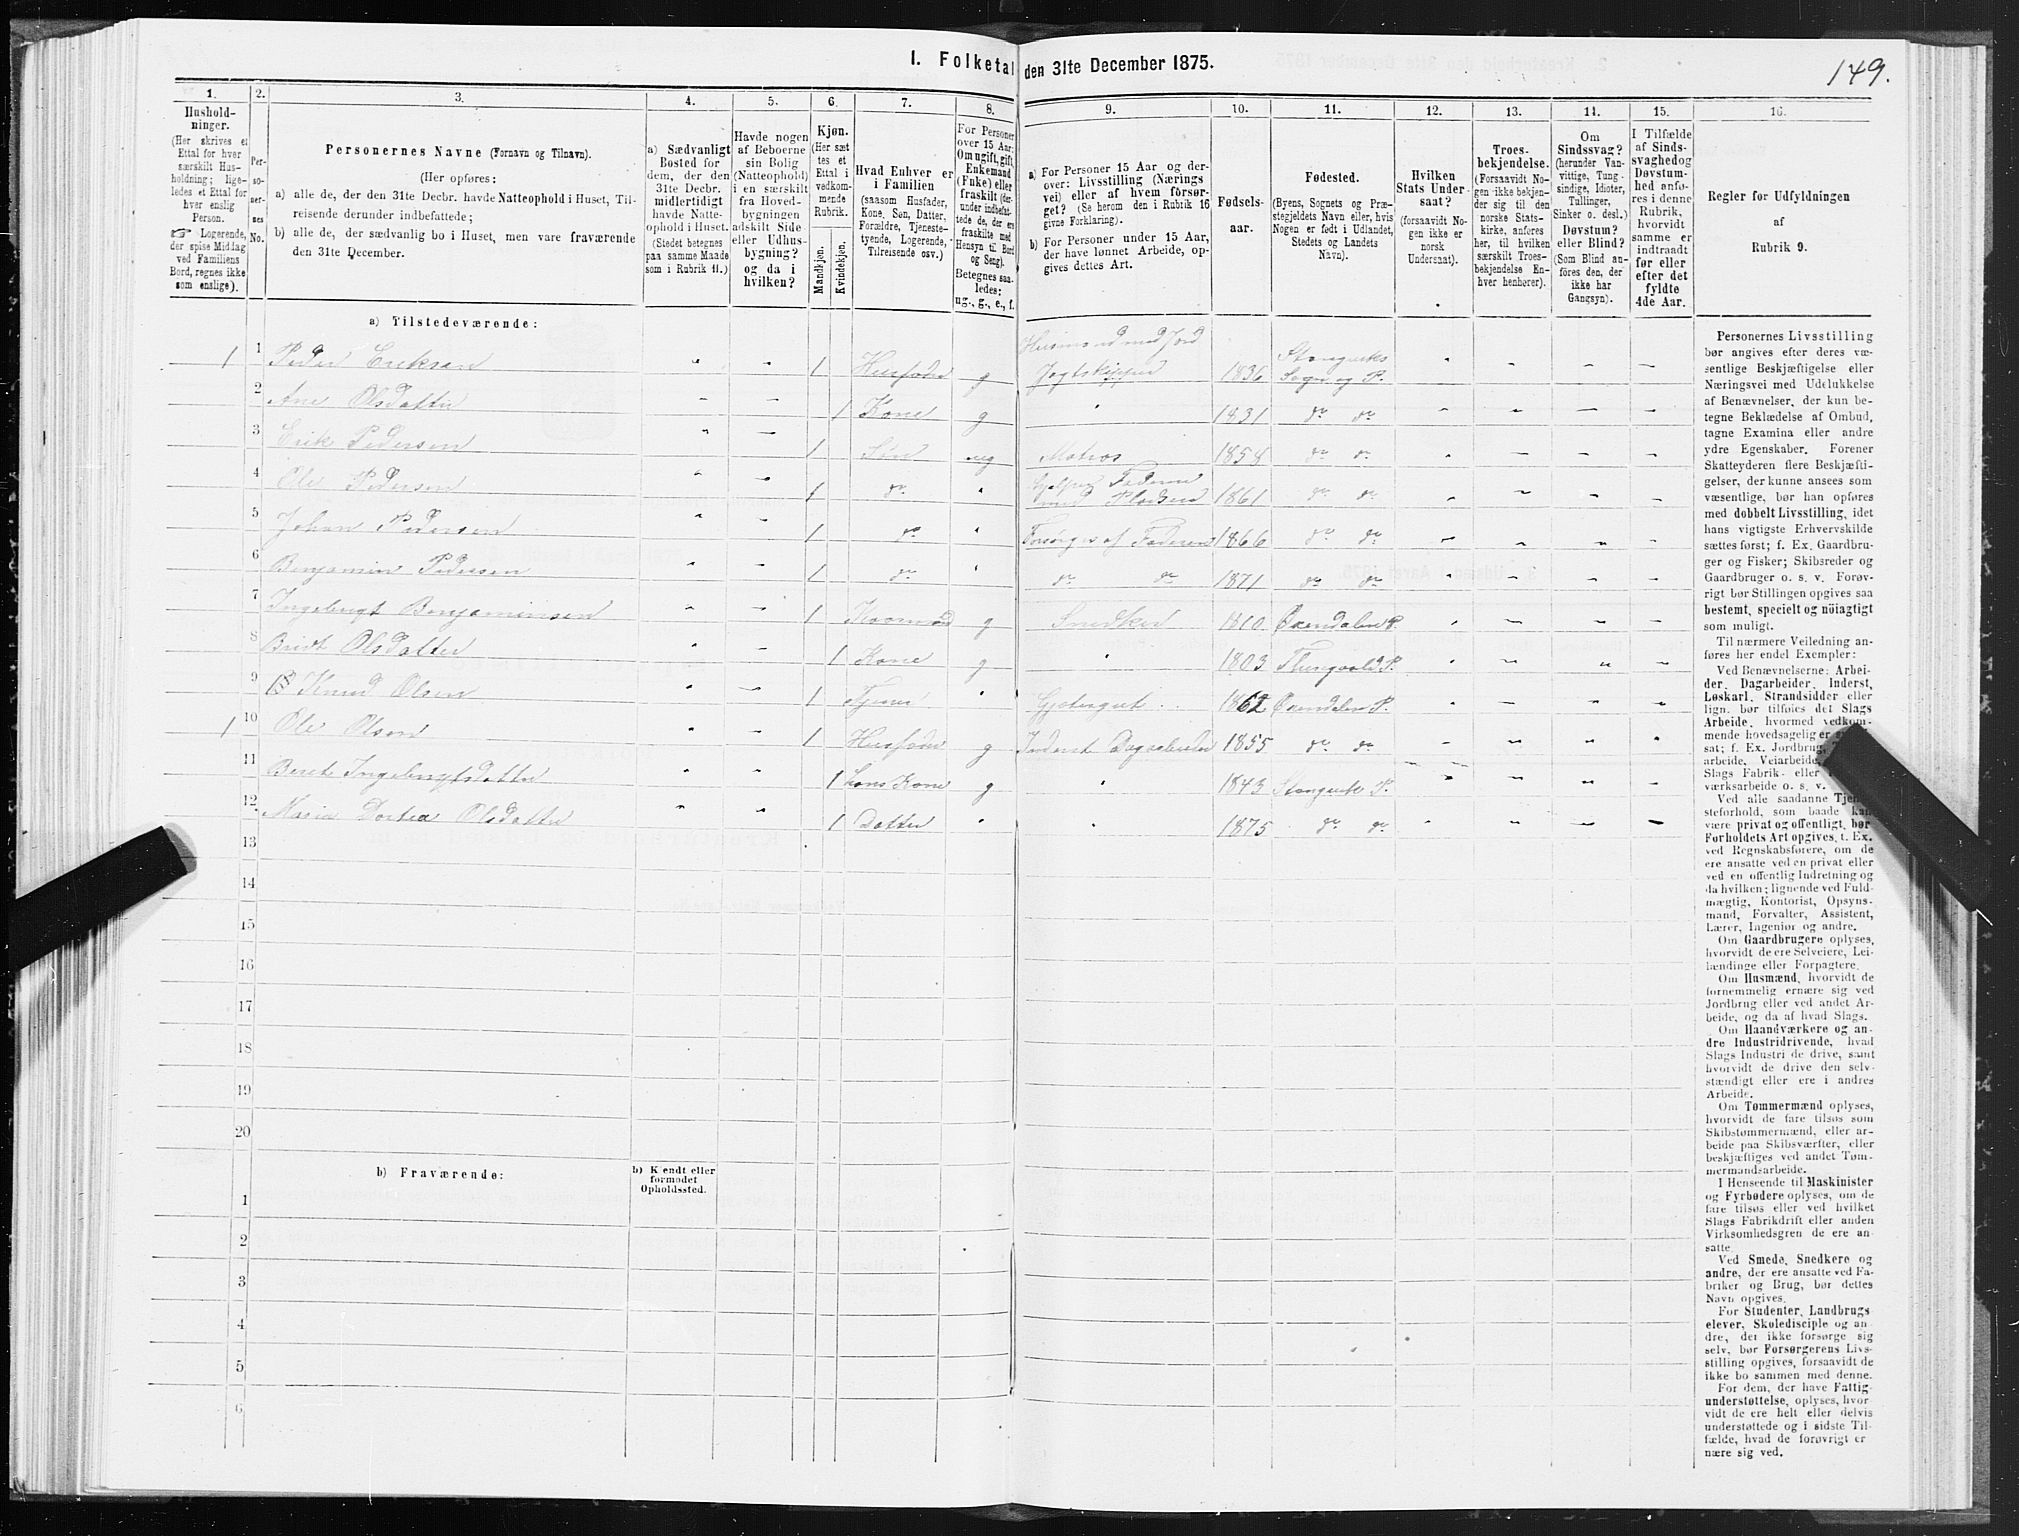 149.
I. Folketal den 31te December 1875.
1. 2. 3. 4. 5. 6. 7. 8. 9. 10. 11. 12. 13. 14. 15. 16.
Hushold-
ninger.
(Her skrives et
Ettal for hver
særskilt Hus-
holdning; lige-
ledes et Ettal for
hver enslig
Person.
☞ Logerende,
der spise Middag
ved Familiens
Bord, regnes ikke
som enslige).
Per-
so-
ner-
nes
No.
Personernes Navne (Fornavn og Tilnavn).
(Her opføres:
a) alle de, der den 31te Decbr. havde Natteophold i Huset, Til-
reisende derunder indbefattede;
b) alle de, der sædvanlig bo i Huset, men vare fraværende
den 31te December.
a) Sædvanligt
Bosted for
dem, der den
31te Decbr.
midlertidigt
havde Natte-
ophold i Huset.
(Stedet betegnes
paa samme Maade
som i Rubrik 11.)
Havde nogen
af Beboerne
sin Bolig
(Natteophold)
i en særskilt
fra Hoved-
bygningen
adskilt Side-
eller Udhus-
bygning?
og da i
hvilken?
Kjøn.
(Her sæt
tes et
Ettal i
vedkom-
mende
Rubrik.
Mandkjøn.
Kvindekjøn.
Hvad Enhver er
i Familien
(saasom Husfader,
Kone, Søn, Datter,
Forældre, Tjeneste-
tyende, Logerende,
Tilreisende osv.)
For Personer
over 15 Aar:
Om ugift, gift,
Enkemand
(Enke) eller
fraskilt (der-
under indbefat-
tede de, der ere
fraskilte med
Hensyn til Bord
og Seng).
Betegnes saa-
ledes:
ug., g., e., f.
a) For Personer 15 Aar og der-
over: Livsstilling (Nærings
vei) eller af hvem forsør-
get? (Se herom den i Rubrik 16
givne Forklaring).
b) For Personer under 15 Aar,
der have lønnet Arbeide, op-
gives dettes Art.
Fødsels-
aar.
Fødested.
(Byens, Sognets og Præ-
stegjeldets Navn eller, hvis
Nogen er født i Udlandet,
Stedets og Landets
Navn).
Hvilken
Stats Under-
saat?
(forsaavidt No-
gen ikke er
norsk
Undersaat).
Troes-
bekjendelse.
(Forsaavidt No-
gen ikke bekjen-
der sig til den
norske Stats-
kirke, anføres
her, til hvilken
særskilt Troes-
bekjendelse En-
hver henhører).
Om
Sindssvag?
(herunder Van-
vittige, Tung-
sindige, Idioter,
Tullinger,
Sinker o. desl.)
Døvstum?
eller Blind?
(Som Blind an-
føres den, der
ikke har
Gangsyn).
I Tilfælde
af Sinds-
svaghed og
Døvstum-
hed anfø-
res i denne
Rubrik,
hvorvidt
samme er
indtraadt
før eller
efter det
fyldte
4de Aar.
Regler for Udfyldningen
af
Rubrik 9.
a) Tilstedeværende:
1 1 Peder Eriksen " " 1 Husfader g Husmand med Jord Jagtskipper 1836 Stangviks Sogn og P.
2 Ane Olsdatter " " 1 Kone g " 1831 do do
3 Erik Pedersen " " 1 Søn ug Matros 1858 do do
4 Ole Pedersen " " 1 do " Hjelper Faderen med Pladsen 1861 do do
5 Johan Pedersen " " 1 do " Forsørges af Faderen 1866 do do
6 Benjamin Pedersen " " 1 do " do do 1871 do do
7 Ingebrigt Benjaminsen " " 1 g Snedker 1810 Øxendalen P.
8 Bridt Olsdatter " " 1 Kone g " 1803 Thingvold P.
9 Knud Olsen " " 1 Tjener " Gjetergut 1862 Øxendalen P.
1 10 Ole Olsen " " 1 Husfader g Inderst Dagarbeider 1855 do do
11 Beret Ingebrigtsdatter " " 1 hans Kone g " 1843 Stangvik P.
12 Maria Dortea Olsdatter " " 1 Datter " " 1875 do do
13
14
15
16
17
18
19
20
b) Fraværende:
b) Kjendt eller
formodet
Opholdssted.
1
2
3
4
5
6
Personernes Livsstilling
bør angives efter deres væ-
sentlige Beskjæftigelse eller
Næringsvei med Udelukkelse
af Benævnelser, der kun be-
tegne Beklædelse af Ombud,
tagne Examina eller andre
ydre Egenskaber. Forener
Skatteyderen flere Beskjæfti-
gelser, der kunne ansees som
væsentlige, bør han opføres
med dobbelt Livsstilling, idet
hans vigtigste Erhvervskilde
sættes først; f. Ex. Gaardbru-
ger og Fisker; Skibsreder og
Gaardbruger o. s. v. Forøv-
rigt bør Stillingen opgives saa
bestemt, specielt og nöiagtigt
som muligt.
Til nærmere Veiledning an-
føres her endel Exempler:
Ved Benævnelserne: Arbei-
der, Dagarbeider, Inderst,
Løskarl, Strandsidder eller
lign. bør tilføies det Slags
Arbeide, hvormed vedkom-
mende hovedsagelig er
sat; f. Ex. Jordbrug,
arbeide, Veiarbeide,
Slags Fabrik- eller
værksarbeide o. s. v.
Ved alle saadanne Tjene-
steforhold, som baade kan
være privat og offentligt, bør
Forholdets Art opgives, t. Ex.
ved Regnskabsførere, om de
ere ansatte ved en privat eller
ved en offentlig Indretning og
da hvilken; lignende ved Fuld-
mægtig, Kontorist, Opsyns-
mand, Forvalter, Assistent,
Lærer, Ingeniør og andre.
Om Gaardbrugere oplyses,
hvorvidt de ere Selveiere, Lei-
lændinge eller Forpagtere.
Om Husmænd, hvorvidt de
fornemmelig ernære sig ved
Jordbrug eller ved andet Ar-
beide, og da af hvad Slags.
Om Haandværkere og an-
dre Industridrivende, hvad
Slags Industri de drive, samt
hvorvidt de drive den selv-
stændigt eller ere i andres
Arbeide.
Om Tømmermænd oplyses,
hvorvidt de fare tilsøs som
Skibstømmermænd, eller ar-
beide paa Skibsværfter, eller
beskjæftiges ved andet Tøm-
mermandsarbeide.
I Henseende til Maskinister
og Fyrbødere oplyses, om de
fare tilsøs eller ved hvilket
Slags Fabrikdrift eller anden
Virksomhedsgren de ere an-
satte.
Ved Smede, Snedkere og
andre, der ere ansatte ved Fa-
briker og Brug, bør dettes
Navn opgives.
For Studenter, Landbrugs
elever, Skoledisciple og an-
dre, der ikke forsørge sig
selv, bør Forsørgerens Livs-
stilling opgives, forsaavidt de
ikke bo sammen med denne.
For dem, der have Fattig-
understøttelse, oplyses, hvor-
vidt de ere helt eller delvis
understøttede og i sidste Til-
fælde, hvad de forøvrigt er-
nære sig ved.